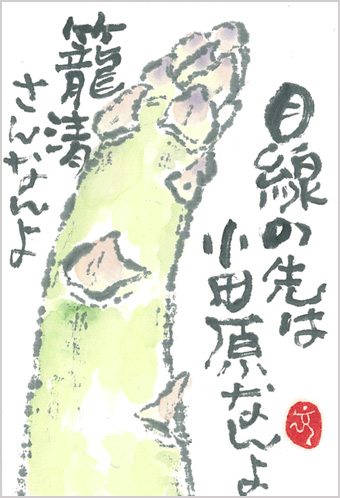 目線の先は
小田原なんよ
籠清
さんなんよ